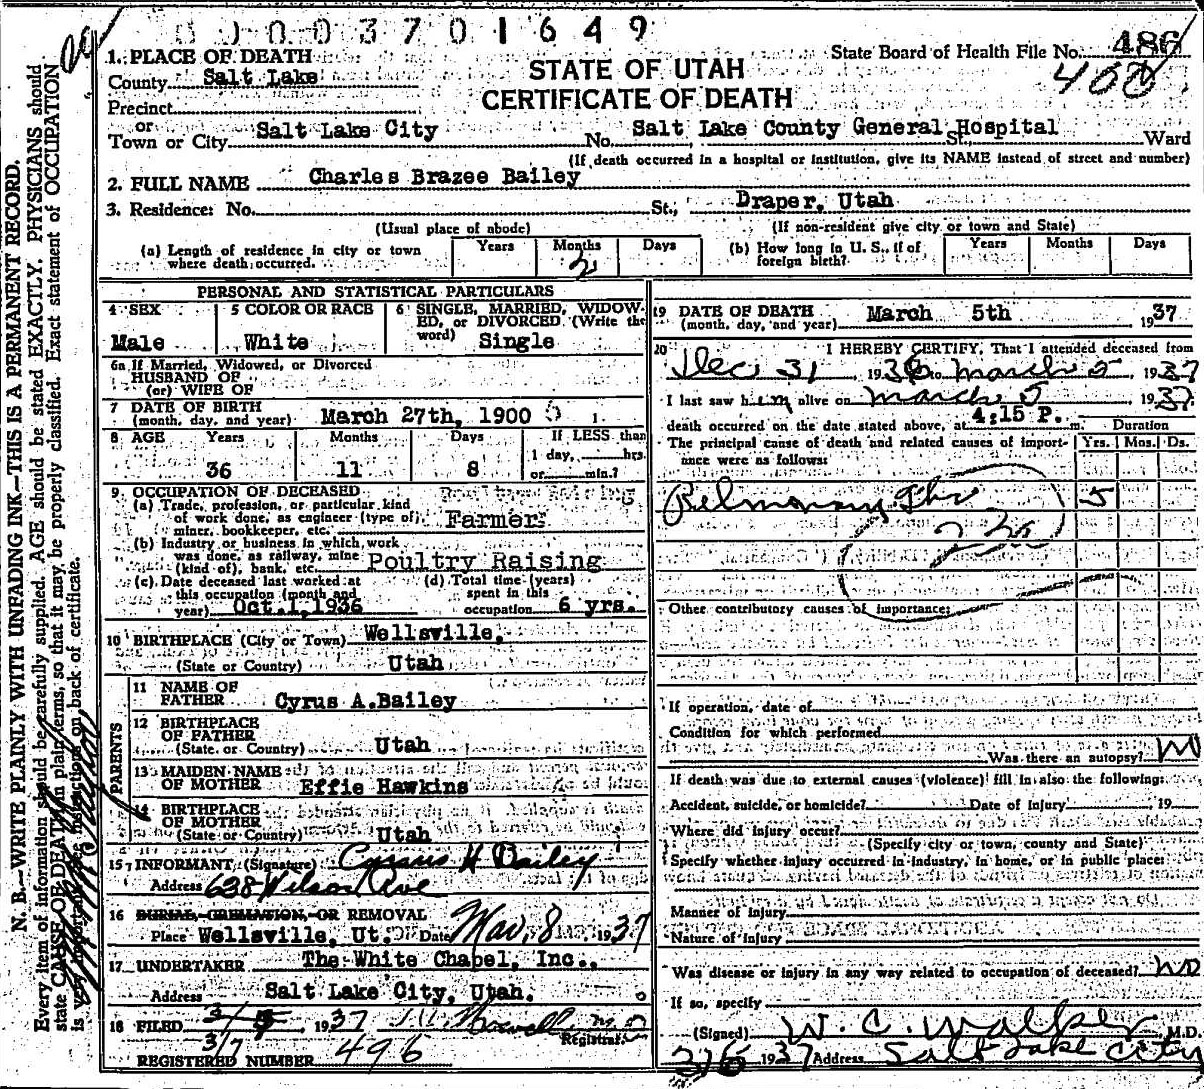 0 0 0 3 7 0 1 6 4 9
State Board of Health File No. 486
400
STATE OF UTAH
CERTIFICATE OF DEATH
1. PLACE OF DEATH
County Salt Lake
Precinct
or
Town or City Salt Lake City No. Salt Lake County General Hospital St., Ward
(If death occurred in a hospital or institution, give its NAME instead of street and number)
2. FULL NAME Charles Brazee Bailey
3. Residence: No. St., Draper, Utah
(Usual place of abode) (If non-resident give city or town and State)
(a) Length of residence in city or town where death occurred. Years Months 2 Days
(b) How long in U. S., if of foreign birth? Years Months Days
PERSONAL AND STATISTICAL PARTICULARS
4 SEX Male
5 COLOR OR RACE White
6 SINGLE, MARRIED, WIDOWED, or DIVORCED (Write the word) Single
6a If Married, Widowed, or Divorced
HUSBAND OF
(or) WIFE OF
7 DATE OF BIRTH
(month, day, and year) March 27th, 1900
8 AGE Years Months Days If LESS than
1 day, hrs.
36 11 8 or min.?
9 OCCUPATION OF DECEASED
(a) Trade, profession, or particular kind
of work done, as engineer (type of), Farmer
miner, bookkeeper, etc.
(b) Industry or business in which work
was done, as railway, mine
(kind of), bank, etc. Poultry Raising
(c) Date deceased last worked at
this occupation (month and
year) Oct. 1, 1936
(d) Total time (years)
spent in this
occupation 6 yrs.
10 BIRTHPLACE (City or Town) Wellsville,
(State or Country) Utah
PARENTS
11 NAME OF
FATHER Cyrus A.Bailey
12 BIRTHPLACE
OF FATHER
(State or Country) Utah
13 MAIDEN NAME
OF MOTHER Effie Hawkins
14 BIRTHPLACE
OF MOTHER
(State or Country) Utah
15 INFORMANT (Signature) Cyrus H Bailey
Address 638 Wilson Ave
16 BURIAL, CREMATION, OR REMOVAL
Place Wellsville, Ut. Date Mar. 8 1937
17 UNDERTAKER The White Chapel, Inc.,
Address Salt Lake City, Utah.
18 FILED 3/5 1937 M. D.
3/7 Registrar.
REGISTERED NUMBER 496
19 DATE OF DEATH
(month, day, and year) March 5th 1937
20 I HEREBY CERTIFY, That I attended deceased from
Dec 31, 1936 to March 5, 1937
I last saw him alive on March 5 1937
death occurred on the date stated above, at 4:15 P. m. Duration
The principal cause of death and related causes of importance were as follows: Yrs. Mos. Ds.
Pulmonary Tbc 5
Other contributory causes of importance:
If operation, date of
Condition for which performed
Was there an autopsy? no
If death was due to external causes (violence) fill in also the following:
Accident, suicide, or homicide? Date of injury , 19
Where did injury occur?
(Specify city or town, county and State)
Specify whether injury occurred in industry, in home, or in public place:
Manner of injury
Nature of injury
Was disease or injury in any way related to occupation of deceased? no
If so, specify
(Signed) W. C. Walker M.D.
3/6 1937 Address Salt Lake City
N. B.—WRITE PLAINLY WITH UNFADING INK—THIS IS A PERMANENT RECORD.
Every item of information should be carefully supplied. AGE should be stated EXACTLY. PHYSICIANS should
state CAUSE OF DEATH in plain terms, so that it may be properly classified. Exact statement of OCCUPATION
is very important. See instructions on back of certificate.